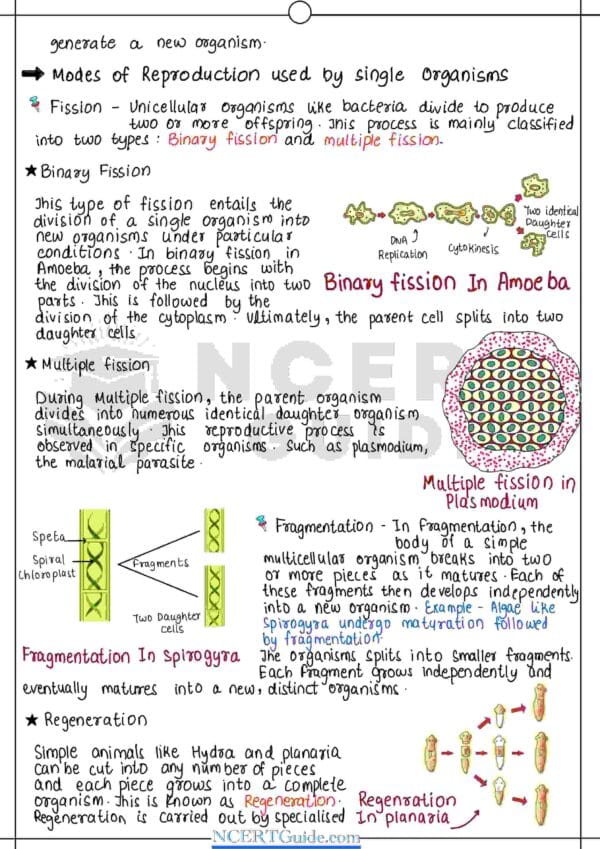 generate a new organism.
➡ Modes of Reproduction used by single Organisms
Fission - Unicellular organisms like bacteria divide to produce
two or more offspring. This process is mainly classified
into two types : Binary fission and multiple fission.
★ Binary Fission
This type of fission entails the
division of a single organism into
new organisms under particular
conditions. In binary fission in
Amoeba, the process begins with
the division of the nucleus into two
parts. This is followed by the
division of the cytoplasm. Ultimately, the parent cell splits into two
daughter cells
DNA
Replication
Cytokinesis
Two identical
Daughter
Cells
Binary fission In Amoeba
★ Multiple fission
During Multiple fission, the parent organism
divides into numerous identical daughter organism
simultaneously. This reproductive process is
observed in specific organisms. Such as plasmodium,
the malarial parasite.
Multiple fission in
Plasmodium
NCERT
GUIDE
Speta
Spiral
Chloroplast
fragments
Two Daughter
cells
Fragmentation In Spirogyra
Fragmentation - In fragmentation, the
body of a simple
multicellular organism breaks into two
or more pieces as it matures. Each of
these fragments then develops independently
into a new organism. Example - Algae like
Spirogyra undergo maturation followed
by fragmentation.
The organisms splits into smaller fragments.
Each fragment grows independently and
eventually matures into a new, distinct organisms.
★ Regeneration
Simple animals like Hydra and planaria
can be cut into any number of pieces
and each piece grows into a complete
organism. This is known as Regeneration.
Regeneration is carried out by specialised
Regenration
In planaria
NCERTGuide.com